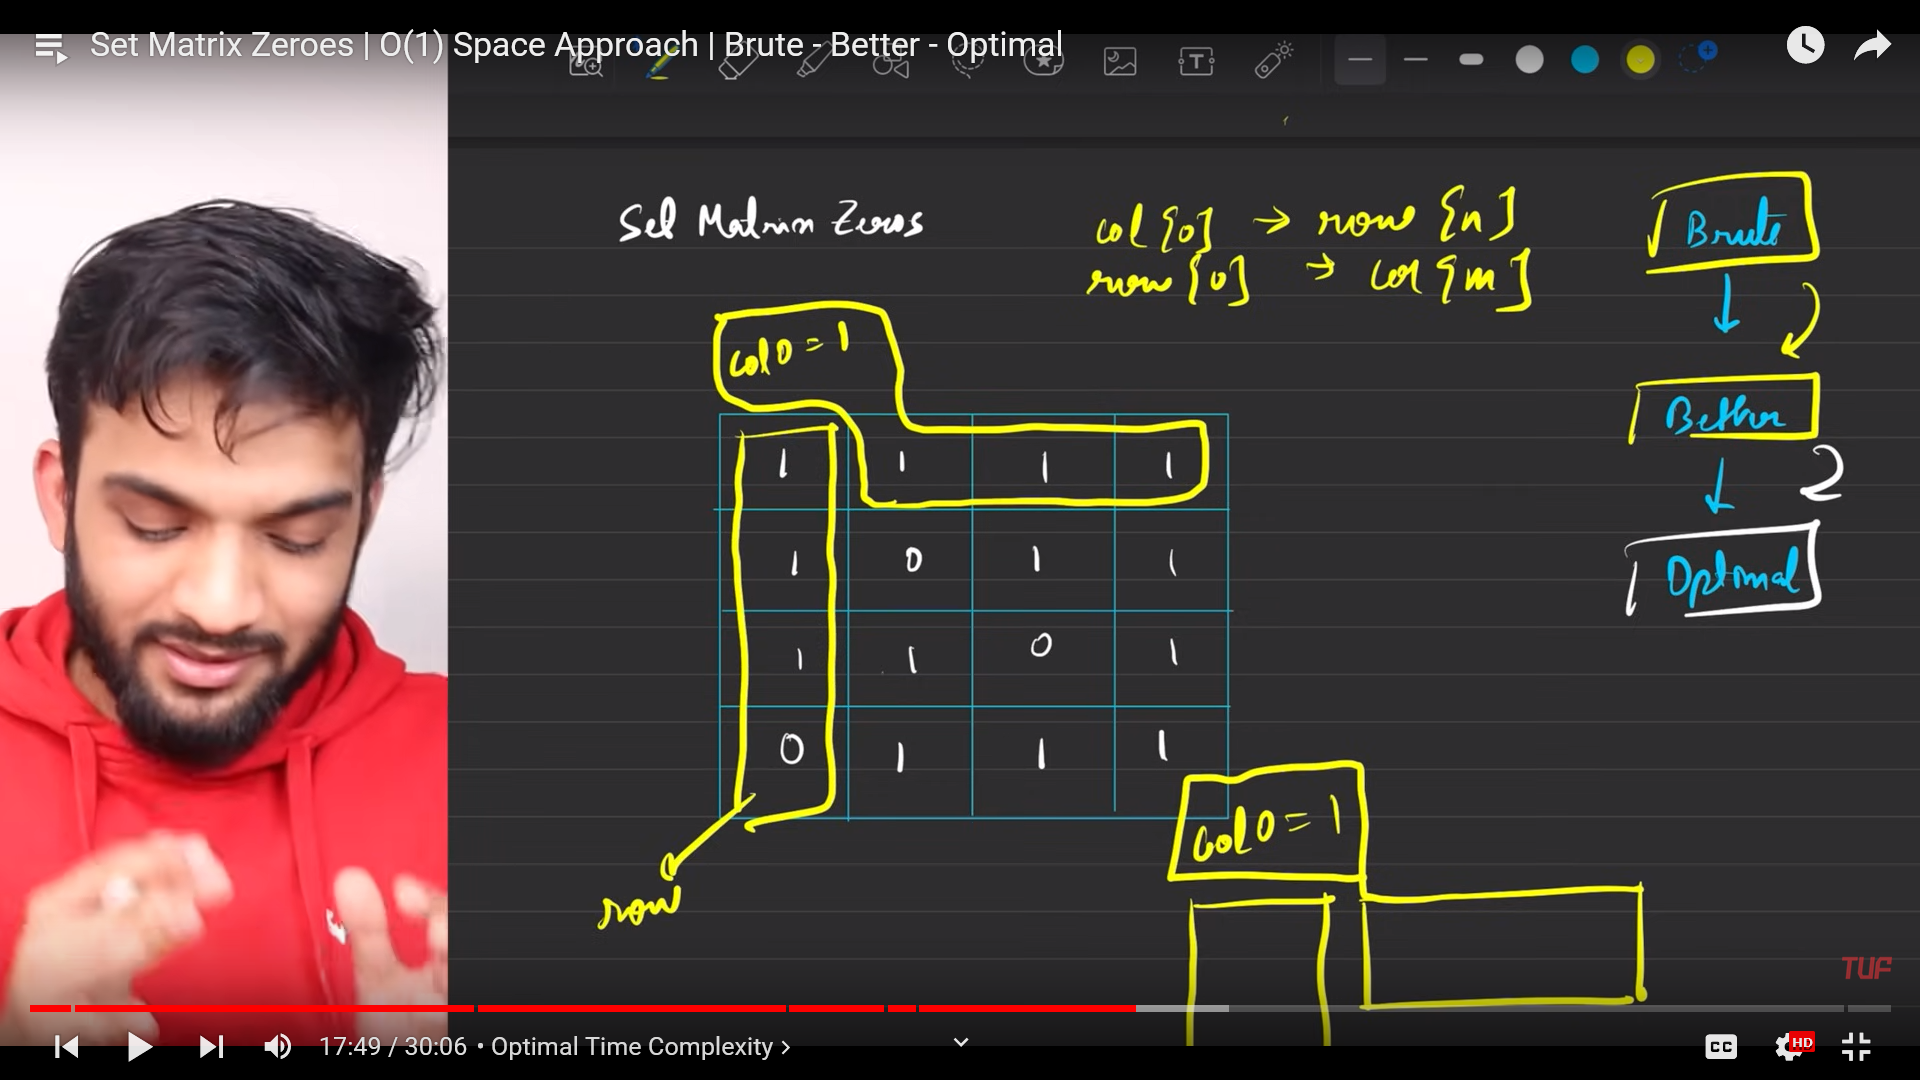 Set Matrix Zeroes | O(1) Space Approach | Brute - Better - Optimal
Set Matrix Zeros
col[0] → row[n]
row[0] → col[m]
Brute
Better
2
Optimal
col0 = 1
1 1 1 1
1 0 1 1
1 1 0 1
0 1 1 1
row
col0 = 1
TUF
17:49 / 30:06 • Optimal Time Complexity >
CC
HD